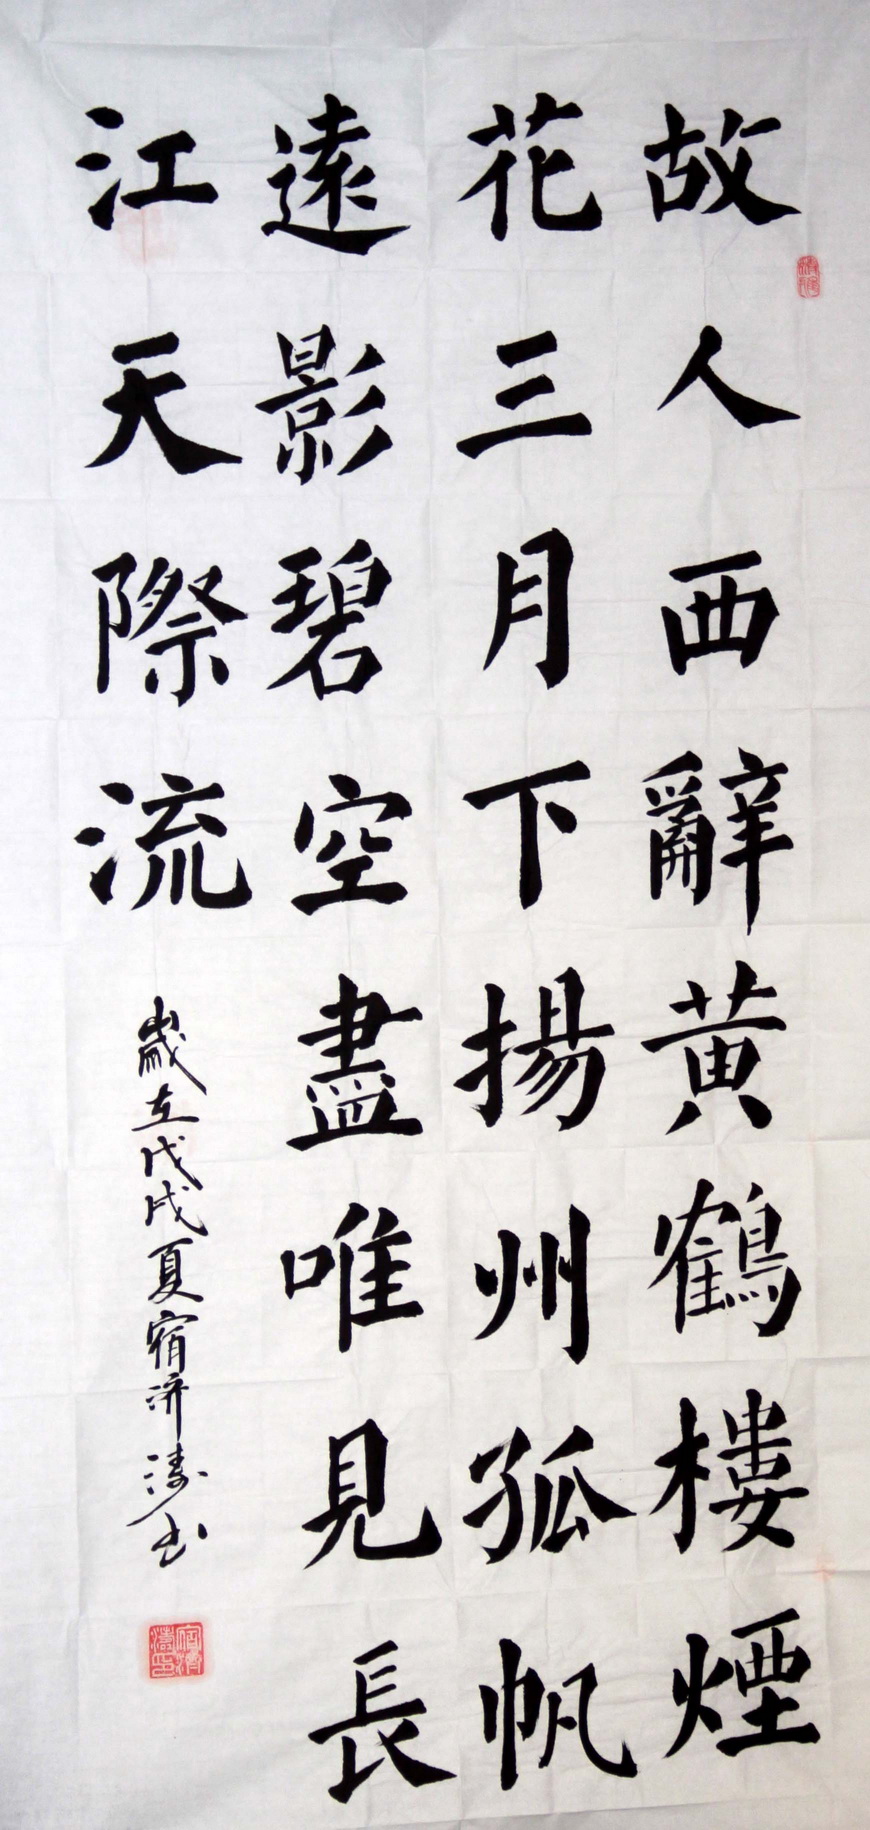 故人西辭黃鶴樓煙
花三月下揚州孤帆
遠影碧空盡唯見長
江天際流
歲在戊戌夏宿濟濤書
宿濟濤印